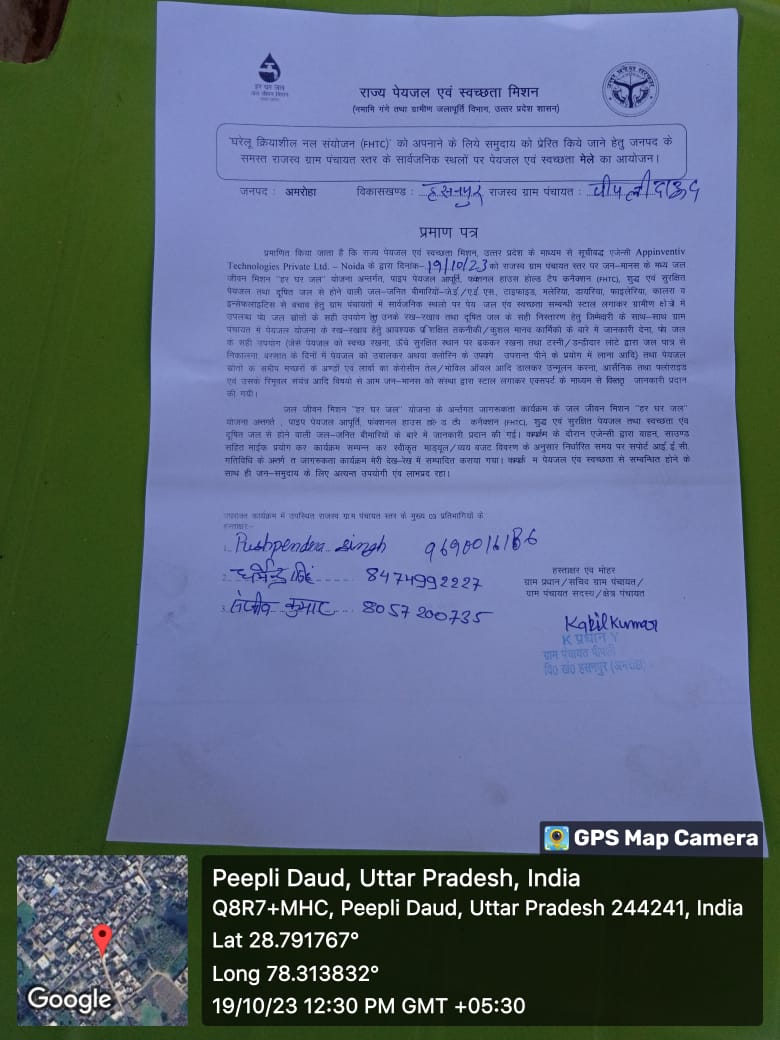 हर घर जल
जल जीवन मिशन
राज्य पेयजल एवं स्वच्छता मिशन
(नमामि गंगे तथा ग्रामीण जलापूर्ति विभाग, उत्तर प्रदेश शासन)
'घरेलू क्रियाशील नल संयोजन (FHTC)' को अपनाने के लिये समुदाय को प्रेरित किये जाने हेतु जनपद के
समस्त राजस्व ग्राम पंचायत स्तर के सार्वजनिक स्थलों पर पेयजल एवं स्वच्छता मेले का आयोजन।
जनपद : अमरोहा विकासखण्ड : हसनपुर राजस्व ग्राम पंचायत : पीपली दाऊद
प्रमाण पत्र
प्रमाणित किया जाता है कि राज्य पेयजल एवं स्वच्छता मिशन, उत्तर प्रदेश के माध्यम से सूचीबद्ध एजेन्सी Appinventiv
Technologies Private Ltd. – Noida के द्वारा दिनांक- 19/10/23 को राजस्व ग्राम पंचायत स्तर पर जन-मानस के मध्य जल
जीवन मिशन "हर घर जल" योजना अन्तर्गत, पाइप पेयजल आपूर्ति, फंक्शनल हाउस होल्ड टैप कनैक्शन (FHTC), शुद्ध एवं सुरक्षित
पेयजल तथा दूषित जल से होने वाली जल-जनित बीमारियों-जे.ई/ए.ई एस, टाइफाइड, मलेरिया, डायरिया, फाइलेरिया, कालरा व
इन्सेफलाइटिस से बचाव हेतु ग्राम पंचायतों में सार्वजनिक स्थलो पर पेय जल एंव स्वच्छता सम्बन्धी स्टाल लगाकर ग्रामीण क्षेत्रों में
उपलब्ध जल स्रोतों के सही उपयोग उनके रख-रखाव तथा दूषित जल के सही निस्तारण हेतु जिम्मेदारी के साथ-साथ ग्राम
पंचायत में पेयजल योजना के रख-रखाव हेतु आवश्यक प्रशिक्षित तकनीकी/कुशल मानव कार्मिको के बारे में जानकारी देना, जल
के सही उपयोग (जेसे पेयजल को स्वच्छ रखना, ऊँचे सुरक्षित स्थान पर ढककर रखना तथा टस्नी/डन्डीदार लोटे द्वारा जल पात्र से
निकालना, बरसात के दिनों में पेयजल को उबालकर अथवा क्लोरिन के उपरान्त पीने के प्रयोग में लाना आदि) तथा पेयजल
स्रोतों के समीप मच्छरों के अण्डों एवं लार्वा का केरोसीन तेल/मोविल ऑयल आदि डालकर उन्मूलन करना, आर्सेनिक तथा फ्लोराइड
एवं उसके रिमूवल संयंत्र आदि विषयो से आम जन-मानस को संस्था द्वारा स्टाल लगाकर एक्सपर्ट के माध्यम से जानकारी प्रदान
की गयी।
जल जीवन मिशन "हर घर जल" योजना के अर्न्तगत जागरूकता कार्यक्रम के जल जीवन मिशन "हर घर जल"
योजना अन्तर्गत , पाइप पेयजल आपूर्ति, फंक्शनल हाउस कनेक्शन (FHTC), शुद्ध एवं सुरक्षित पेयजल तथा स्वच्छता एंव
दूषित जल से होने वाली जल-जनित बीमारियों के बारे में जानकारी प्रदान की गई। के दौरान एजेन्सी द्वारा वाहन, साउण्ड
सहित माईक प्रयोग कर कार्यक्रम सम्पन्न कर स्वीकृत माड्यूल/व्यय बजट विवरण के अनुसार निर्धारित समय पर सपोर्ट आई.ई.सी.
गतिविधि के जागरूकता कार्यक्रम मेरी देख-रेख में सम्पादित कराया गया। पेयजल एवं स्वच्छता से सम्बन्धित होने के
साथ ही जन-समुदाय के लिए अत्यन्त उपयोगी एंव लाभप्रद रहा।
उपरोक्त कार्यक्रम में उपस्थित राजस्व ग्राम पंचायत स्तर के मुख्य 03 प्रतिभागियों के
हस्ताक्षर:-
1. Pushpendra Singh
2. धर्मेन्द्र सिंह 8474992227
3. संजीव कुमार 8057200735
हस्ताक्षर एवं मोहर
ग्राम प्रधान/सचिव ग्राम पंचायत/
ग्राम पंचायत सदस्य/क्षेत्र पंचायत
Kapil Kumar
प्रधान
ग्राम पंचायत पीपली
वि0 खं0 हसनपुर (अमरोहा)
GPS Map Camera
Peepli Daud, Uttar Pradesh, India
Q8R7+MHC, Peepli Daud, Uttar Pradesh 244241, India
Lat 28.791767°
Long 78.313832°
19/10/23 12:30 PM GMT +05:30
Google